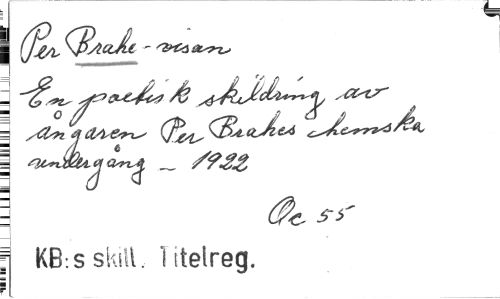 Per Brahe-visan
En poetisk skildring av
ångaren Per Brahes hemska
undergång - 1922
Oc 55
KB:s skill. Titelreg.